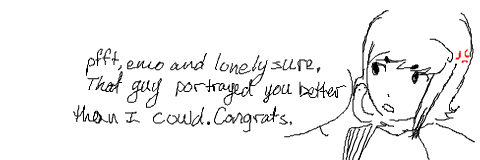 pfft, emo and lonely sure.
That guy portrayed you better
than I could. Congrats.